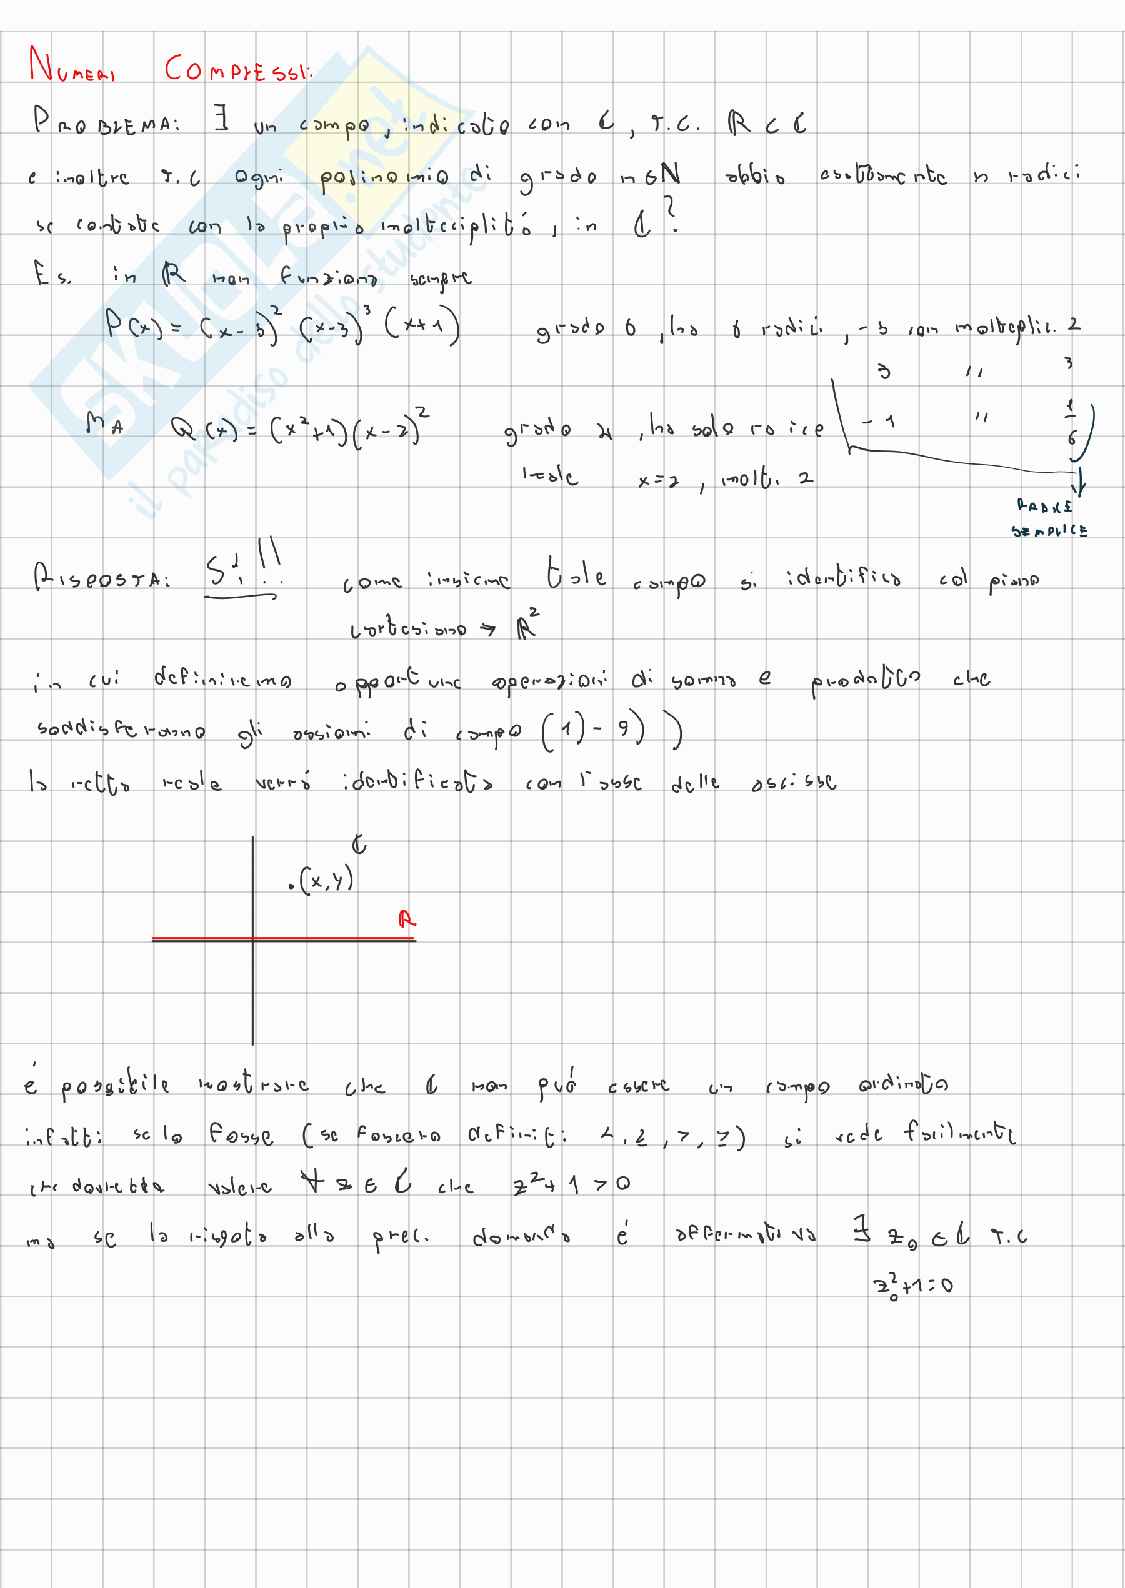 NUMERI COMPLESSI:
PROBLEMA: ∃ un campo, indicato con ℂ, T.C. ℝ ⊂ ℂ
e inoltre T.C ogni polinomio di grado n∈ℕ abbia esattamente n radici
se contate con la propria molteciplitá, in ℂ?
Es. in ℝ non funziona sempre
P(x) = (x-5)² (x-3)³ (x+1) grado 6, ha 6 radici, 5 con molteplic. 2
3 " 3
-1 " 1
6
MA Q(x) = (x²+1)(x-2)² grado 4, ha solo radice
reale x=2, molt. 2
RADICE
SEMPLICE
RISPOSTA: SI!! come insieme tale campo si identifica col piano
cartesiano → ℝ²
in cui definiremo opportune operazioni di somma e prodotto che
soddisferanno gli assiomi di campo (1)-9))
la retta reale verrá identificata con l'asse delle ascisse
ℂ
.(x,y)
ℝ
é possibile mostrare che ℂ non puó essere un campo ordinato
infatti se lo fosse (se fossero definiti <, ≤, >, ≥) si vede facilmente
che dovrebbe valere ∀ z ∈ ℂ che z²+1>0
ma se la risposta alla prec. domanda é affermativa ∃ z₀ ∈ ℂ T.C
z₀²+1=0
skuola.net
il paradiso dello studente